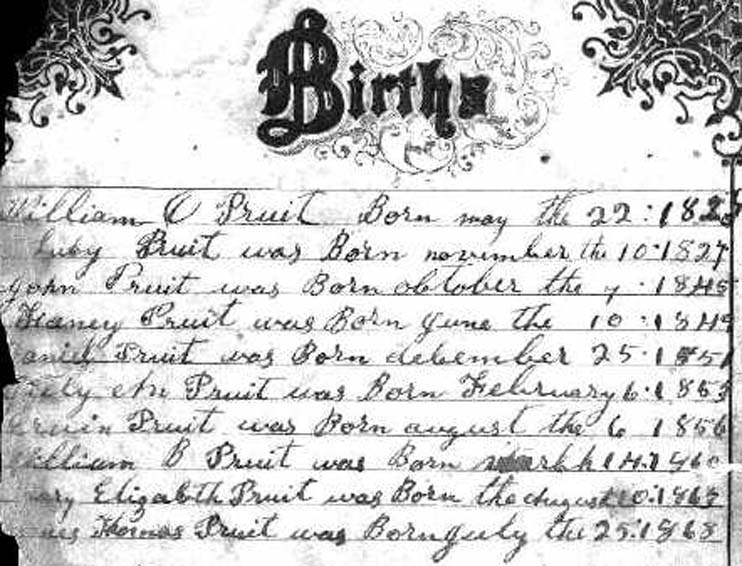 Births
William O Pruit Born may the 22: 182
Luby Pruit was Born november the 10:1827
john Pruit was Born obtober the 7 : 1845
Haney Pruit was Born june the 10 : 184
Pruit was Born debember 25:1851
An Pruit was Born February 6:1853
Pruit was Born august the 6 1856
William B Pruit was Born 14:1860
mary Elizabth Pruit was Born the august 10:186
Thomas Pruit was Born july the 25:1868